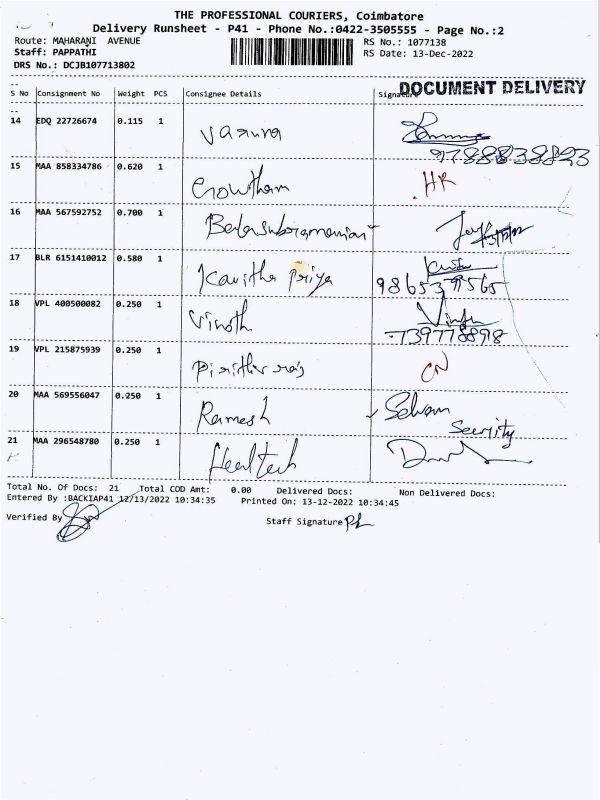 THE PROFESSIONAL COURIERS, Coimbatore
Delivery Runsheet - P41 - Phone No.:0422-3505555 - Page No.:2
Route: MAHARANI AVENUE RS No.: 1077138
Staff: PAPPATHI RS Date: 13-Dec-2022
DRS No.: DCJB107713802
DOCUMENT DELIVERY
S No Consignment No Weight PCS Consignee Details Signature
14 EDQ 22726674 0.115 1 Varuna
9788838893
15 MAA 858334786 0.620 1 Gowtham HR
16 MAA 567592752 0.700 1 Balasubramanian
17 BLR 6151410012 0.580 1 Kavitha Priya
9865379565
18 VPL 400500082 0.250 1 Vinoth
739778898
19 VPL 215875939 0.250 1 CN
20 MAA 569556047 0.250 1 Ramesh Selvam
Security
21 MAA 296548780 0.250 1 Healtech
Total No. Of Docs: 21 Total COD Amt: 0.00 Delivered Docs: Non Delivered Docs:
Entered By :BACKIAP41 12/13/2022 10:34:35 Printed On: 13-12-2022 10:34:45
Verified By
Staff Signature